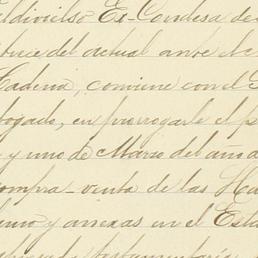 Valdivielso Ex-Condesa de
torce del actual ante el
Cadena, conviene con el
bogado, en prorrogarle el p
y uno de Marzo del año d
ompra-venta de las Ha
y anexas en el Esta